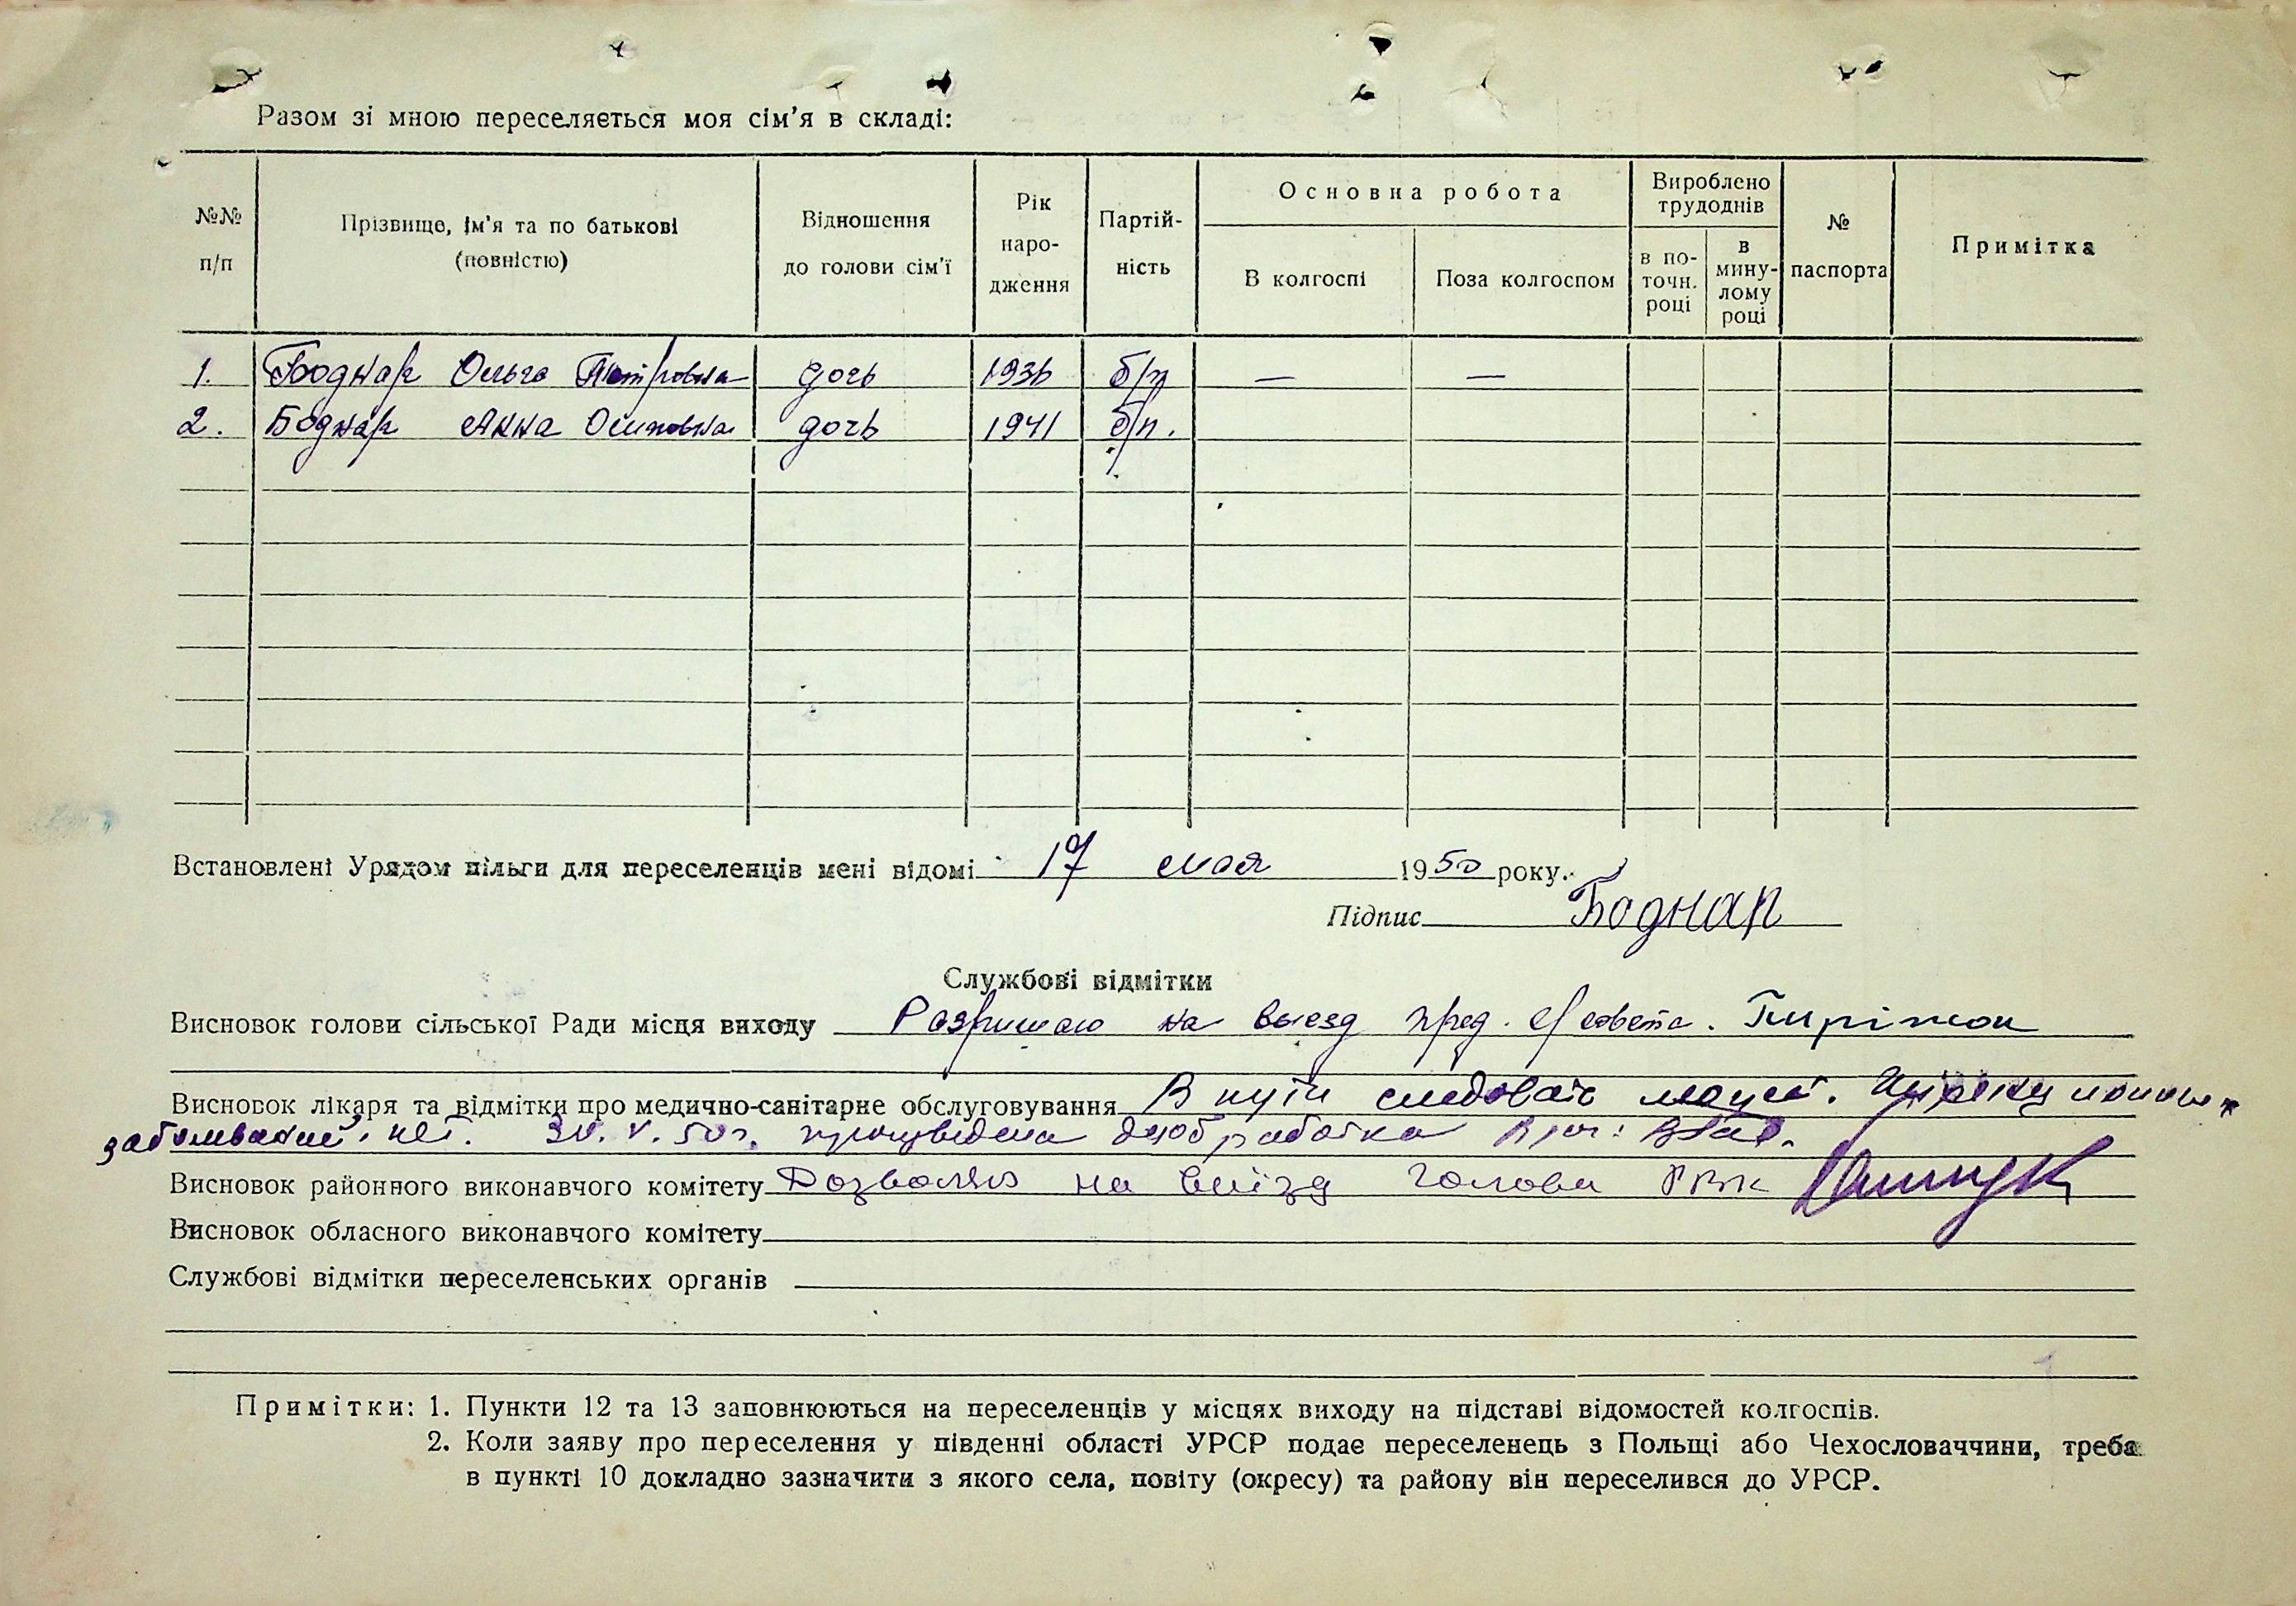 Разом зі мною переселяється моя сім'я в складі:
№№ п/п
Прізвище, ім'я та по батькові (повністю)
Відношення до голови сім'ї
Рік народження
Партійність
Основна робота
В колгоспі
Поза колгоспом
Вироблено трудоднів
в поточн. році
в минулому році
№ паспорта
Примітка
1. Боднар Ольга Петровна дочь 1936 б/п — —
2. Боднар Анна Осиповна дочь 1941 б/п.
Встановлені Урядом пільги для переселенців мені відомі 17 мая 1950 року.
Підпис Боднар
Службові відмітки
Висновок голови сільської Ради місця виходу Разришаю на выезд пред. с/совета.
Висновок лікаря та відмітки про медично-санітарне обслуговування В пути следовать может.
заболеваний нет. 30.V.50г. произведена дезобработка
Висновок районного виконавчого комітету Дозволяю на виїзд голова РВК
Висновок обласного виконавчого комітету
Службові відмітки переселенських органів
Примітки: 1. Пункти 12 та 13 заповнюються на переселенців у місцях виходу на підставі відомостей колгоспів.
2. Коли заяву про переселення у південні області УРСР подає переселенець з Польщі або Чехословаччини, треба
в пункті 10 докладно зазначити з якого села, повіту (окресу) та району він переселився до УРСР.